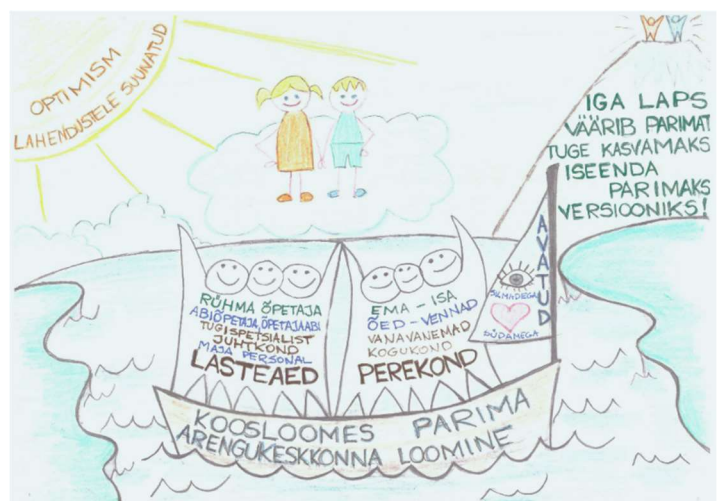 OPTIMISM
LAHENDUSTELE SUUNATUD
IGA LAPS
VÄÄRIB PARIMAT
TUGE KASVAMAKS
ISEENDA
PARIMAKS
VERSIOONIKS!
RÜHMA ÕPETAJA
ABIÕPETAJA, ÕPETAJAABI
TUGISPETSIALIST
JUHTKOND
MAJA PERSONAL
LASTEAED
EMA - ISA
ÕED - VENNAD
VANAVANEMAD
KOGUKOND
PEREKOND
AVATUD
SILMADEGA
SÜDAMEGA
KOOSLOOMES PARIMA
ARENGUKESKKONNA LOOMINE